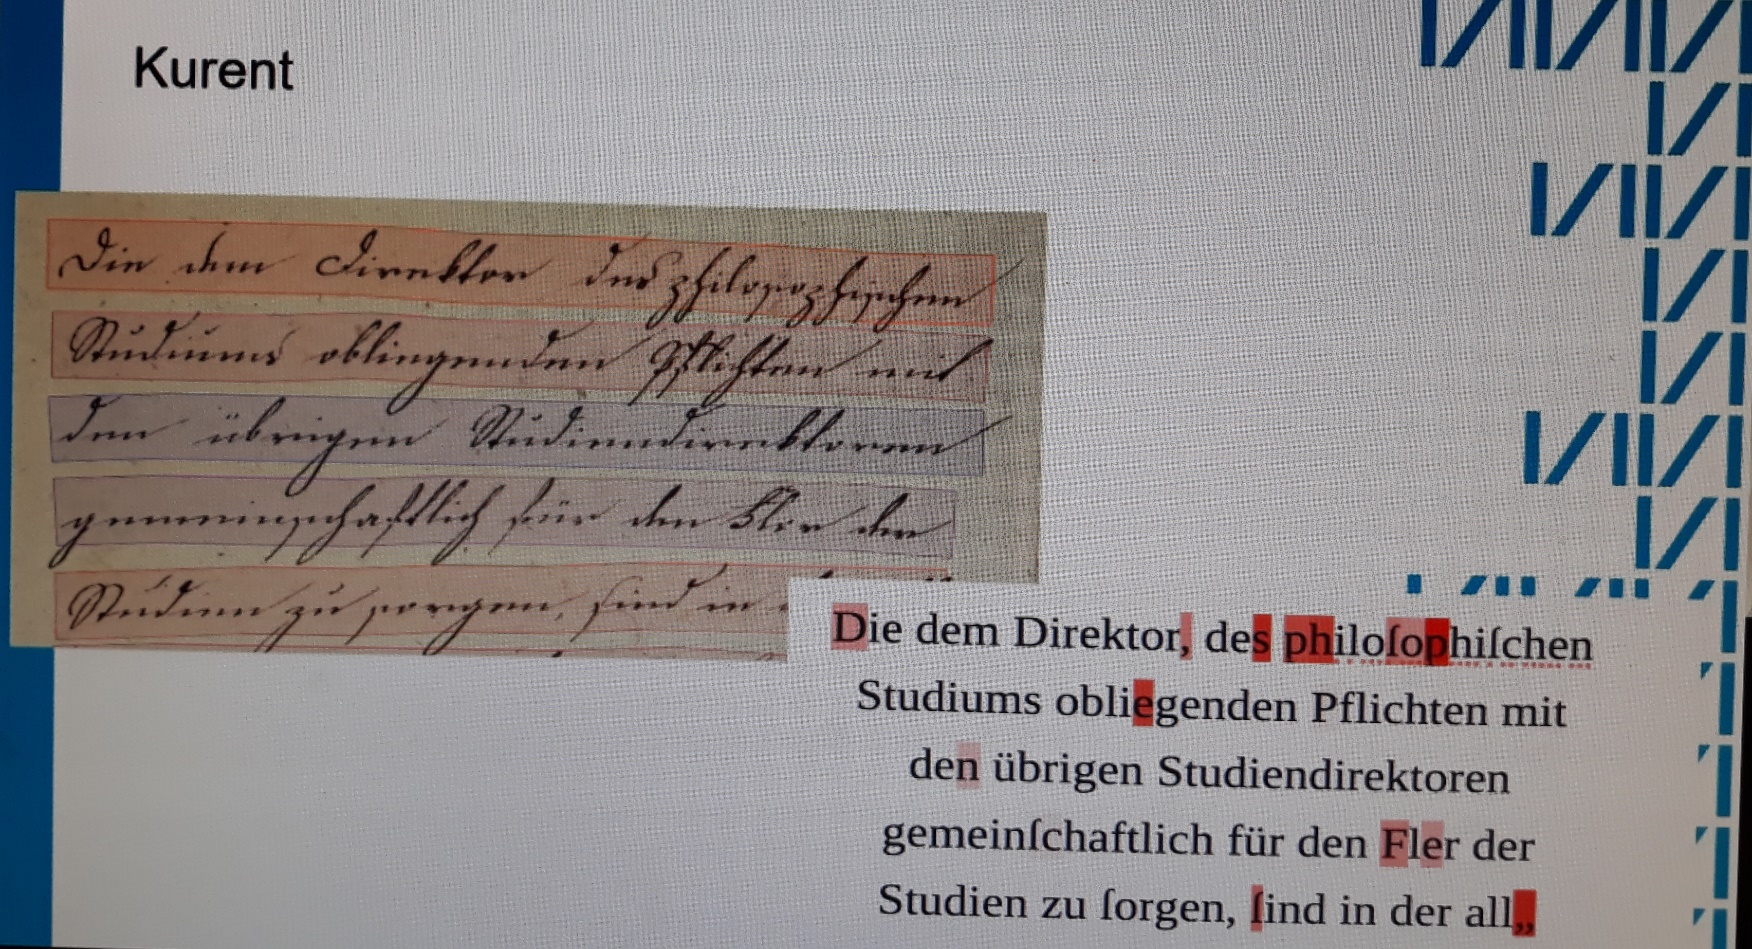 Kurent
Die dem Direktor des philosophischen
Studiums obliegenden Pflichten mit
den übrigen Studiendirektoren
gemeinschaftlich für den Flor der
Studien zu sorgen, sind in
Die dem Direktor, des philoſophiſchen
Studiums obliegenden Pflichten mit
den übrigen Studiendirektoren
gemeinſchaftlich für den Fler der
Studien zu ſorgen, ſind in der all„